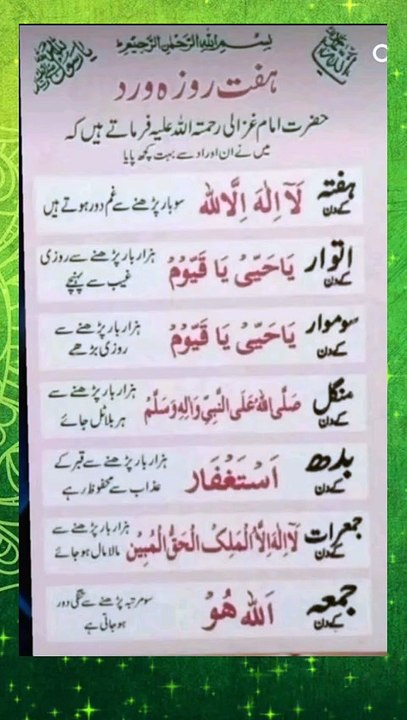 بسم الله الرحمن الرحيم
ہفت روزہ ورد
حضرت امام غزالی رحمتہ اللہ علیہ فرماتے ہیں کہ
میں نے ان اوراد سے بہت کچھ پایا
ہفتہ کے دن لَآ اِلٰهَ اِلَّا اللّٰه سو بار پڑھنے سے غم دور ہوتے ہیں
اتوار کے دن يَا حَيُّ يَا قَيُّوْمُ ہزار بار پڑھنے سے روزی
غیب سے پہنچے
سوموار کے دن يَا حَيُّ يَا قَيُّوْمُ ہزار بار پڑھنے سے
روزی بڑھے
منگل کے دن صَلَّى اللّٰهُ عَلَى النَّبِيِّ وَاٰلِهٖ وَسَلَّمْ ہزار بار پڑھنے سے
ہر بلا ٹل جائے
بدھ کے دن اَسْتَغْفَار ہزار بار پڑھنے سے قبر کے
عذاب سے محفوظ رہے
جمعرات کے دن لَآ اِلٰهَ اِلَّا اللّٰهُ الْمَلِكُ الْحَقُّ الْمُبِيْن ہزار بار پڑھنے سے
مالا مال ہو جائے
جمعہ کے دن اَللّٰه هُوْ سو مرتبہ پڑھنے سے تنگی دور
ہو جاتی ہے